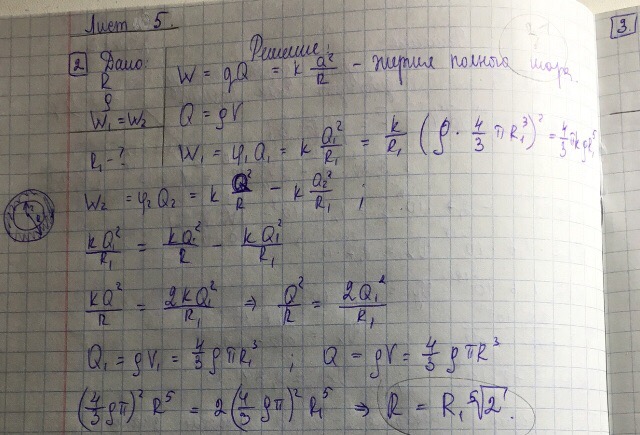 Лист 5.
3.
2. Дано: Решение:
R W = φQ = k Q²/R - энергия полного шара.
ρ
W₁ = W₂ Q = ρV
R₁ - ? W₁ = φ₁Q₁ = k Q₁²/R₁ = k/R₁ (ρ · 4/3 πR₁³)² = 4/3 πkρR₁⁵
W₂ = φ₂Q₂ = k Q²/R - k Q₂²/R₁ ;
kQ₁²/R₁ = kQ²/R - kQ₁²/R₁
kQ²/R = 2kQ₁²/R₁ ⇒ Q²/R = 2Q₁²/R₁
Q₁ = ρV₁ = 4/3 ρπR₁³ ; Q = ρV = 4/3 ρπR³
(4/3 ρπ)² R⁵ = 2(4/3 ρπ)² R₁⁵ ⇒ R = R₁ ⁵√2.